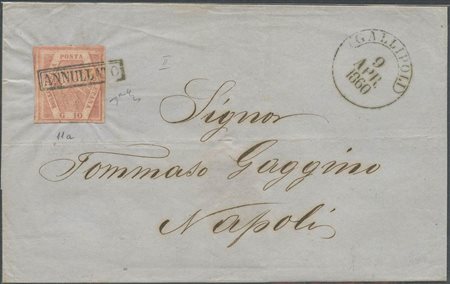 POSTA
ANNULLATO
G. 10
II
11a
GALLIPOLI
9
APR
1860
Signor
Tommaso Gaggino
Napoli